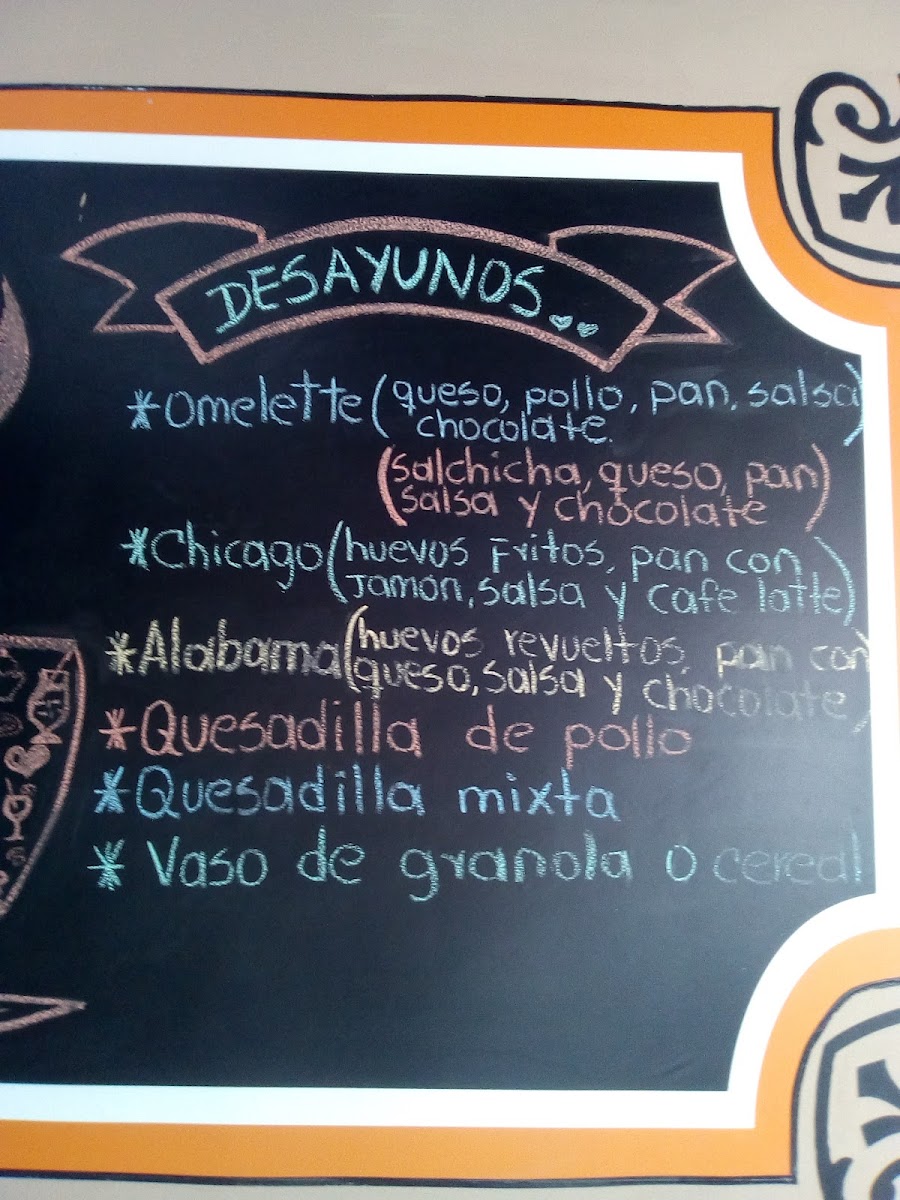 DESAYUNOS..
*Omelette (queso, pollo, pan, salsa
chocolate.)
(salchicha, queso, pan
salsa y chocolate)
*Chicago (huevos Fritos, pan con
Jamón, salsa y cafe latte)
*Alabama (huevos revueltos, pan con
queso, salsa y chocolate)
*Quesadilla de pollo
*Quesadilla mixta
* Vaso de granola o cereal